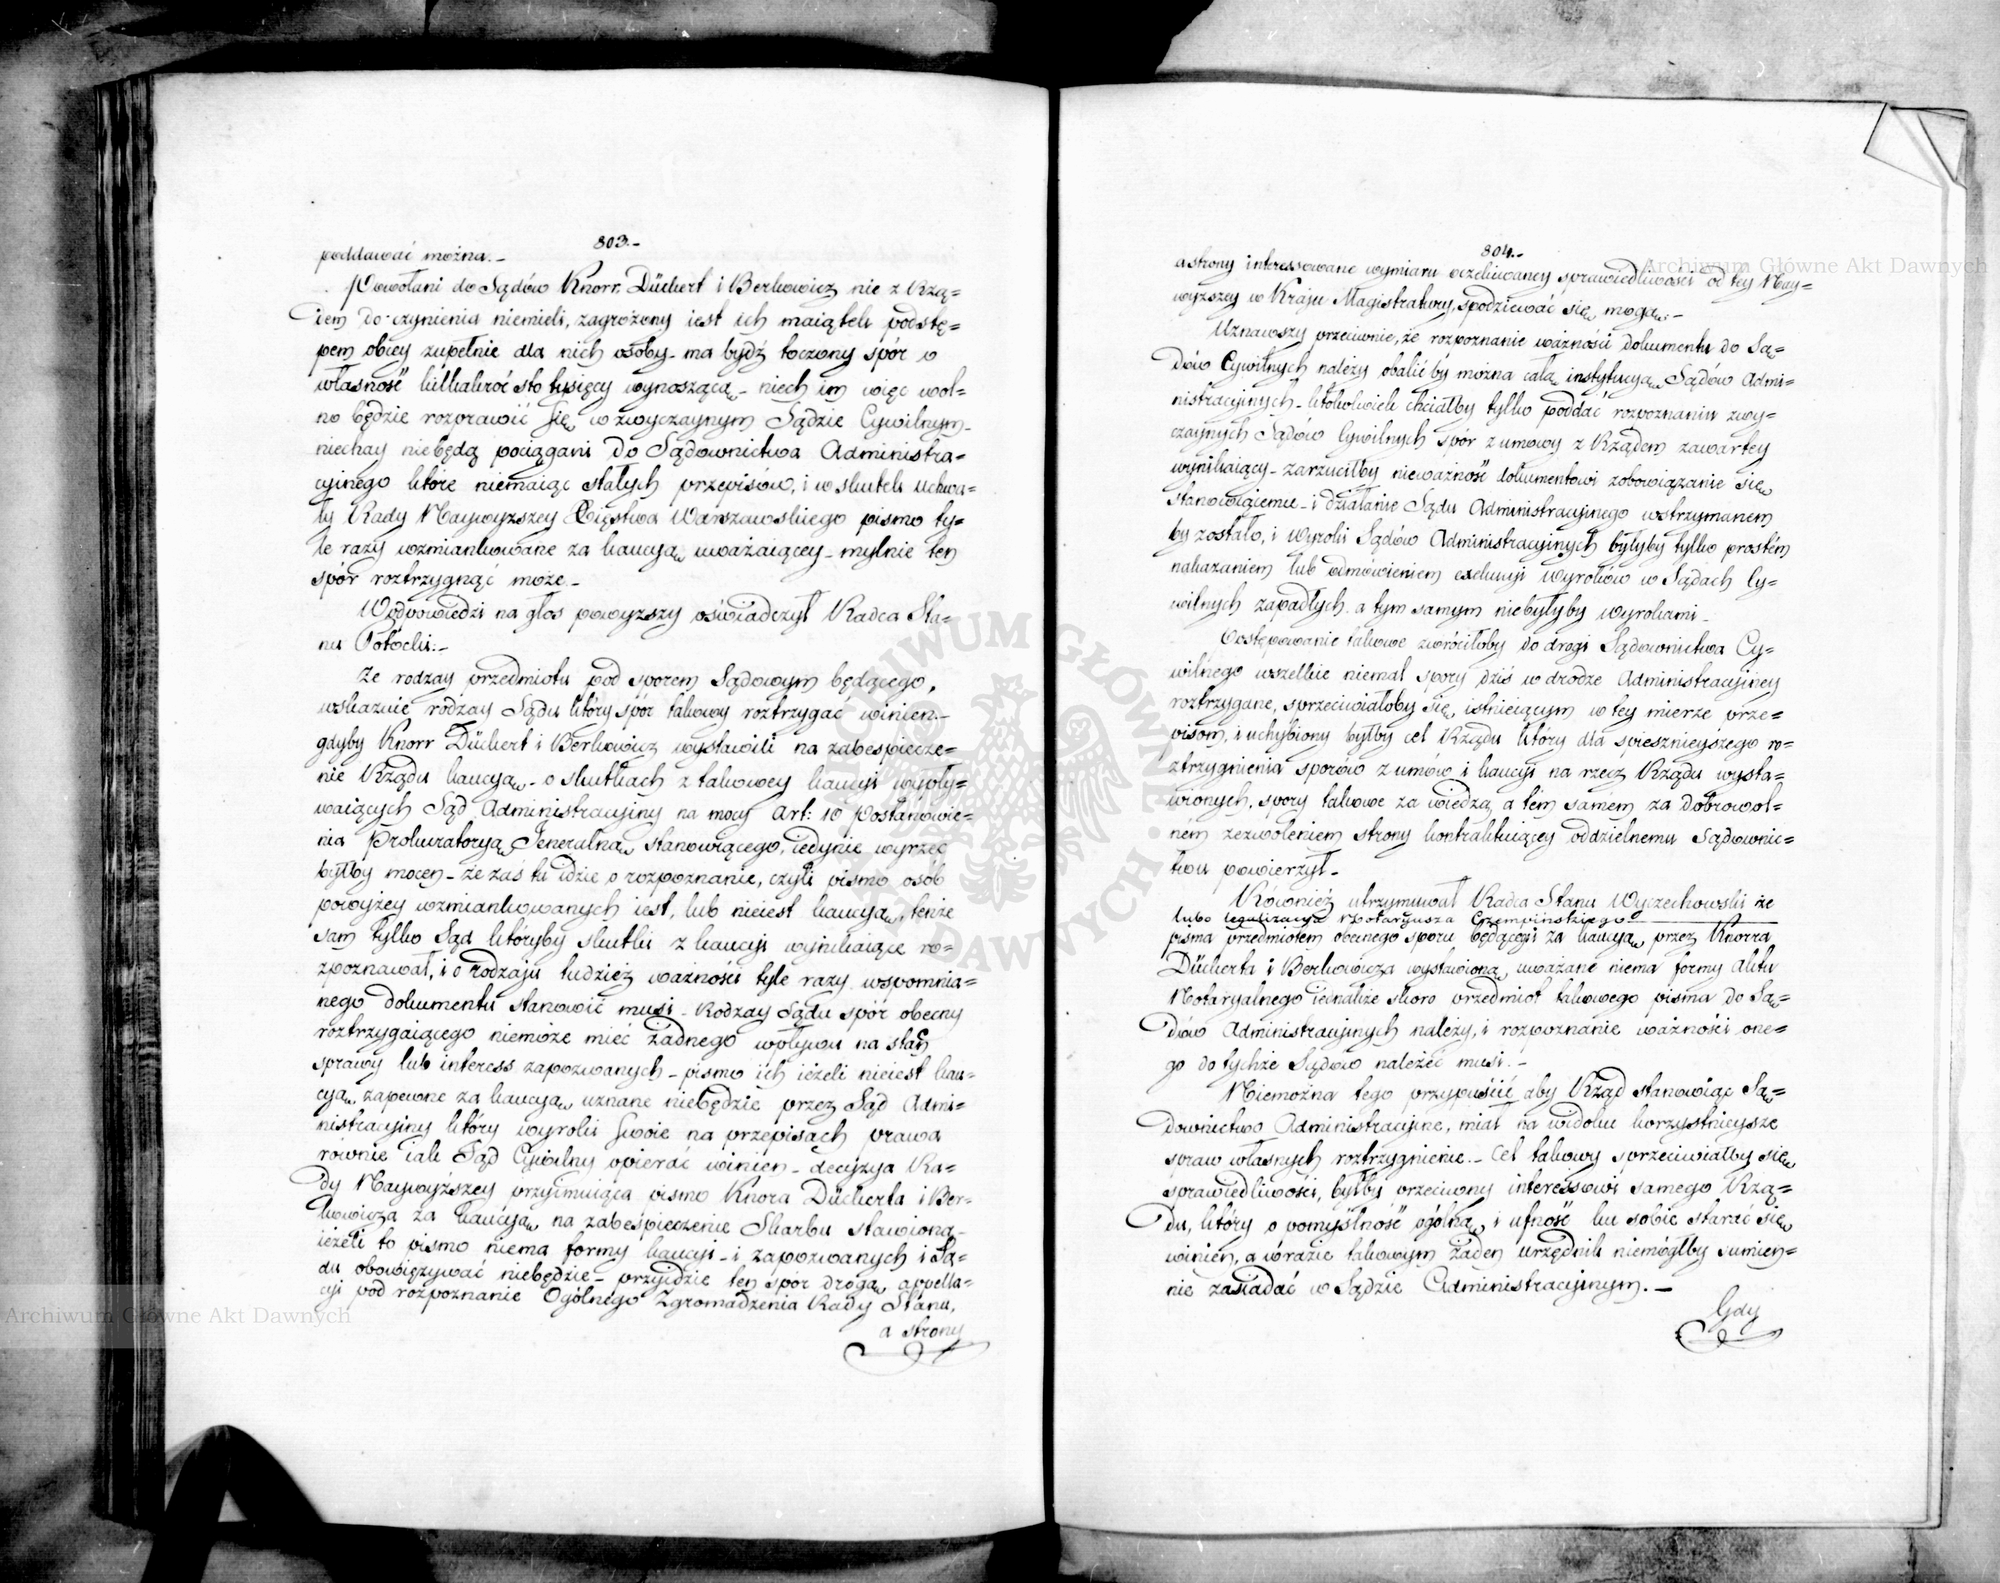 803.-
poddawać można.-
Powołani do Sądów Knorr, Dückert i Berkowicz nie z Rzą=
dem do czynienia niemieli, zagrożony iest ich maiątek podstę=
pem obcey zupełnie dla nich osoby- ma bydź toczony spór o
własność kilkakroć sto tysięcy wynoszącą- niech im więc wol=
no będzie rozprawić się w zwyczaynym Sądzie Cywilnym-
niechay niebędą pociągani do Sądownictwa Administra=
cyinego które niemaiąc stałych przepisów, i w skutek uchwa=
ły Rady Naywyższey Xięstwa Warszawskiego pismo ty=
le razy wzmiankowane za kaucyą uważaiącey- mylnie ten
spór roztrzygnąć może-
W odpowiedzi na głos powyższy oświadczył Radca Sta=
nu Potocki:-
że rodzay przedmiotu pod sporem Sądowym będącego,
wskazuie rodzay Sądu który spór takowy roztrzygać winien.-
gdyby Knorr Dückert i Berkowicz wystawili na zabespiecze=
nie Rządu kaucyą- o skutkach z takowey kaucyi wypły=
waiących Sąd Administracyiny na mocy Art: 10 Postanowie=
nia Prokuratoryą Jeneralną stanowiącego, iedynie wyrzec
byłby mocen- że zaś tu idzie o rozpoznanie, czyli pismo osób
powyżey wzmiankowanych iest, lub nieiest kaucyą, tenże
sam tylko Sąd któryby skutki z kaucyi wynikaiące ro=
zpoznawał, i o rodzaju tudzież ważności tyle razy wspomnia=
nego dokumentu stanowić musi- Rodzay Sądu spór obecny
roztrzygaiącego niemoże mieć żadnego wpływu na stan
sprawy lub interess zapozwanych- pismo ich ieżeli nieiest kau=
cyą, zapewne za kaucyą uznane niebędzie przez Sąd Admi=
nistracyiny który wyroki swoie na przepisach prawa
równie iak Sąd Cywilny opierać winien- decyzya Ra=
dy Naywyższey przyimuiąca pismo Knora Dückerta i Ber=
kowicza za kaucyą na zabespieczenie Skarbu stawioną-
ieżeli to pismo niema formy kaucyi- i zapozwanych i Są=
du obowiązywać niebędzie- przyidzie ten spor drogą appella=
cyi pod rozpoznanie Ogólnego Zgromadzenia Rady Stanu,
a strony
804.-
a strony interessowane wymiaru oczekiwaney sprawiedliwości od tey Nay=
wyższey w Kraju Magistratury, spodziewać się mogą.-
Uznawszy przeciwnie, że rozpoznanie ważności dokumentu do Są=
dów Cywilnych należy obalić by można całą instytucyą Sądów Admi=
nistracyinych- ktokolwiek chciałby tylko poddać rozpoznaniu zwy=
czaynych Sądów Cywilnych spór z umowy z Rządem zawartey
wynikaiący- zarzuciłby nieważność dokumentowi zobowiązanie się
stanowiącemu- i działanie Sądu Administracyinego wstrzymanem
by zostało, i wyroki Sądów Administracyinych byłyby tylko prostém
nakazaniem lub odmówieniem exekucyi wyroków w Sądach Cy=
wilnych zapadłych. a tym samym niebyłyby wyrokami-
Postępowanie takowe zwróciłoby do drogi Sądownictwa Cy=
wilnego wszelkie niemal spory dziś w drodze Administracyiney
roztrzygane, sprzeciwiałoby się istnieiącym w tey mierze prze=
pisom, i uchybiony byłby cel Rządu który dla spiesznieyszego ro=
ztrzygnienia sporów z umów i kaucyi na rzecz Rządu wysta=
wionych, spory takowe za wiedzą a tém samém za dobrowol=
nem zezwoleniem strony kontraktuiącey oddzielnemu Sądownic=
twu powierzył-
Również utrzymywał Radca Stanu Wyczechowski że
lubo legalizacya Notaryusza Czempińskiego
pisma przedmiotem obecnego sporu będącego za kaucyą przez Knorra
Dückerta i Berkowicza wystawioną, uważane niema formy Aktu
Notaryalnego iednakże skoro przedmiot takowego pisma do Są=
dów Administracyinych należy, i rozpoznanie ważności one=
go do tychże Sądów należeć musi.-
Niemożna tego przypuścić aby Rząd stanowiąc Są=
downictwo Administracyine, miał na widoku korzystnieysze
spraw własnych roztrzygnienie.- Cel takowy sprzeciwiałby się
sprawiedliwości, byłby przeciwny interessowi samego Rzą=
du, który o pomyślność ogólną, i ufność ku sobie starać się
winien, a w razie takowym żaden urzędnik niemógłby sumien=
nie zasiadać w Sądzie Administracyinym.-
Gdy
Archiwum Główne Akt Dawnych
Archiwum Główne Akt Dawnych
ARCHIWUM GŁÓWNE AKT DAWNYCH